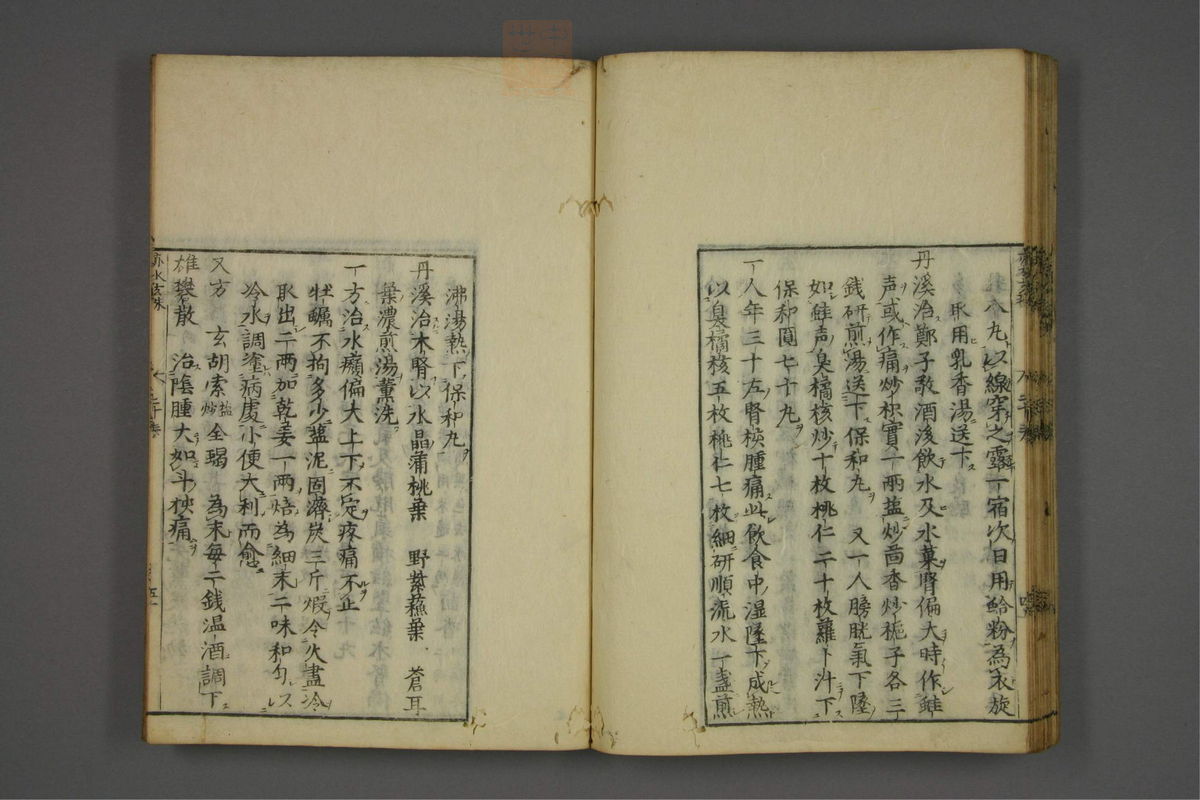 八丸以線穿之露一宿次日用蛤粉為衣旋
取用乳香湯送下
丹溪治鄭子敬酒後飲水及水菓腎偏大時作蛙
声或作痛炒枳實一兩盐炒茴香炒梔子各三
銭研煎湯送下保和丸 又一人膀胱氣下墜
如蛙声臭橘核炒十枚桃仁二十枚蘿卜汁下
保和圓七十丸
一人年三十左腎核腫痛此飲食中湿墜下成熱
以臭橘核五枚桃仁七枚細研順流水一盞煎
沸湯熱下保和丸
丹溪治木腎以水晶蒲桃葉 野紫蘓葉 蒼耳
葉濃煎湯薰洗
一方治水癩偏大上下不定疼痛不止
牡蠣不拘多少盐泥固濟炭三斤煅令火盡冷
取出二兩加乾姜一兩焙為細末二味和匀
冷水調塗病處小便大利而愈
又方 玄胡索盐炒 全蝎 為末每二銭温酒調下
雄礬散 治陰腫大如斗核痛